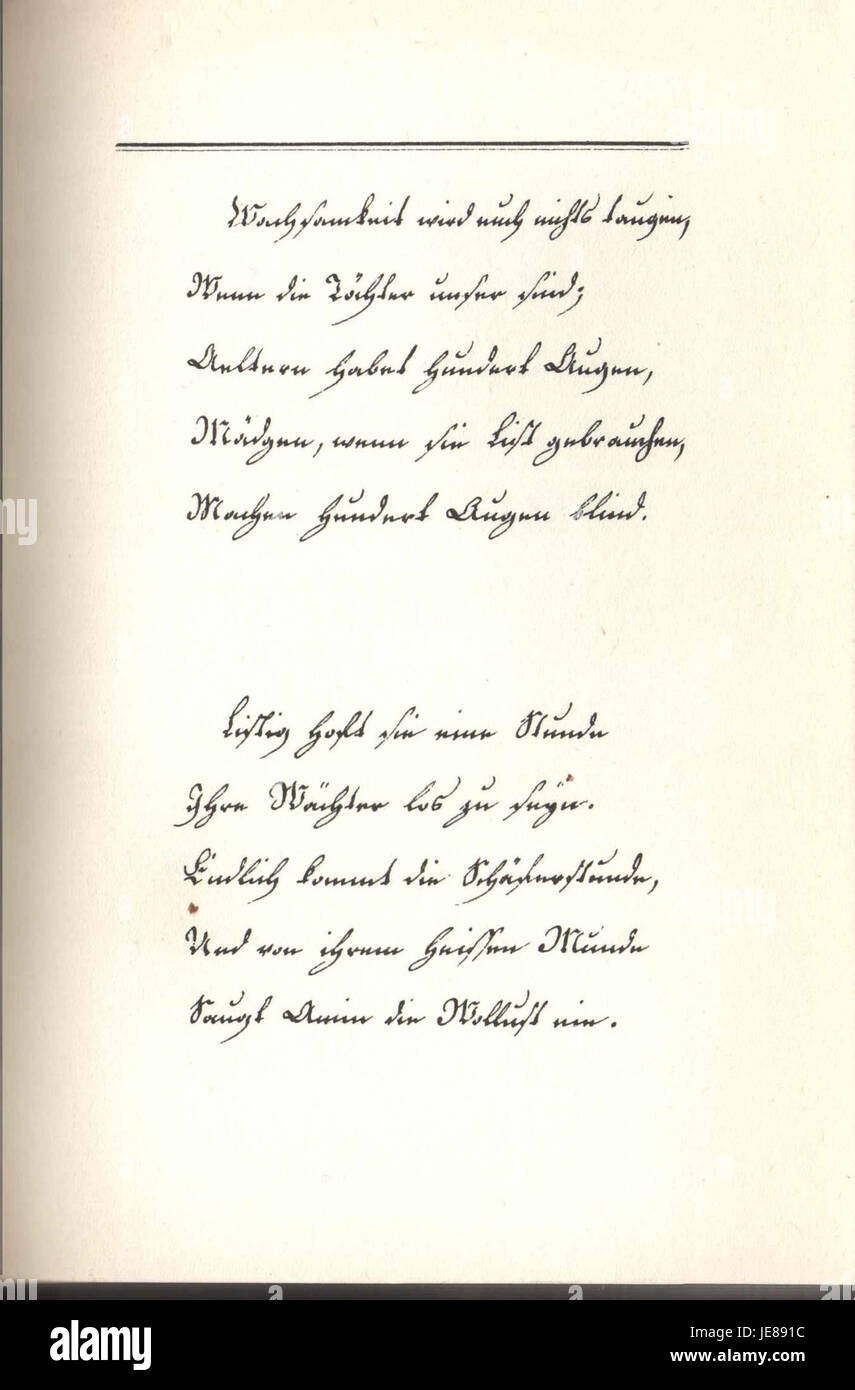 Wachsamkeit wird euch nichts taugen,
Wenn die Töchter unser sind;
Aeltern habet hundert Augen,
Mädgen, wenn sie List gebrauchen,
Machen hundert Augen blind.
Listig hoft sie eine Stunde
Ihre Wächter los zu seyn.
Endlich kommt die Schäferstunde,
Und von ihrem heissen Munde
Saugt Amin die Wollust ein.
alamy
Image ID: JE891C
www.alamy.com